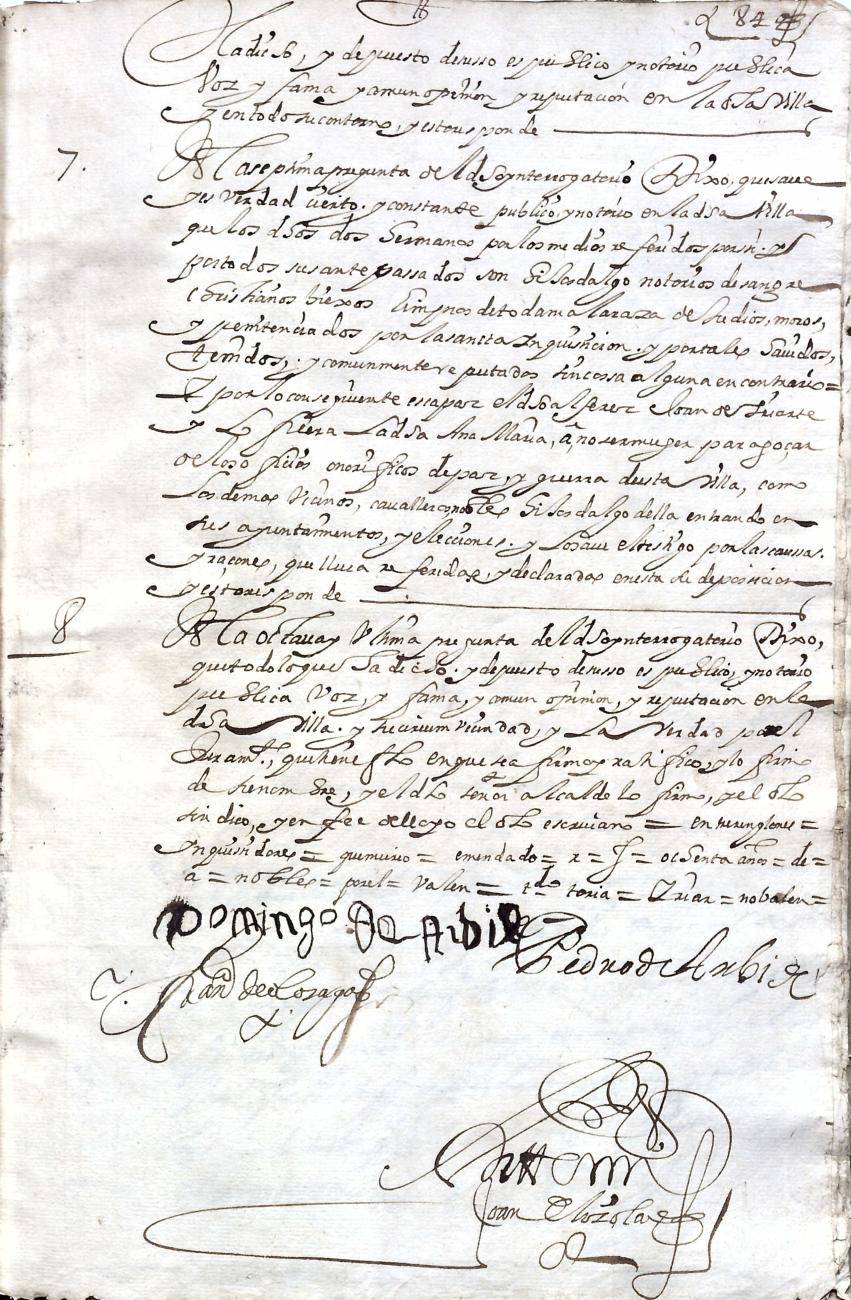 844
Ha dicho, y depuesto de susso es publico y notorio publica
Voz y fama y comun opinion y reputación en la dha Villa
y en todo su contorno, y esto responde
7.
A la septima pregunta del dho ynterrogatorio Dixo, que save
y es verdad cierto y constante publico, y notorio en la dha Villa
que los dhos dos hermanos por los medios referidos por si y
por todos sus antepassados son hijosdalgo notorios de sangre
christianos viexos limpios de toda mala raza de Judios, moros,
y penitenciados por la sancta Inquisicion. y por tales havidos,
tenidos, y comunmente reputados sin cossa alguna en contrario =
Y por lo consiguiente es capaz el dho alferez Joan de Iriarte
y lo fuera la dha Ana Maria, a no ser muger para goçar
de los officios onorificos de paz, y guerra desta Villa, como
los demas vecinos, cavalleros nobles hijosdalgo della entrando en
sus ayuntamientos, y elecciones. y lo save el testigo por las caussas.
y raçones, que lleva referidas, y declaradas en esta su deposicion
y esto responde
8
A la octava y Ultima pregunta del dho ynterrogatorio Dixo,
que todo lo que ha dicho. y depuesto de susso es publico, y notorio
publica Voz, y fama, y comun opinion, y reputacion en la
dha Villa. y su circumvecindad, y la verdad para el
Juramto, que tiene fho en que se a firmo y ratifico, y lo firmo
de su nombre, y el dho señor alcalde lo firmo, y el dho
sindico, y en fee dello yo el dho escrivano = entrerenglones =
Inquisidores = = emendado = x = = ochenta años = de =
a = nobles = por el = Valen = = no valen =
Domingo de Arbide
Pedro de Arbide
Ante mi
Joan